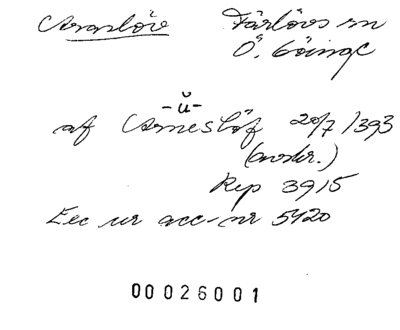 Araslöv Färlövs sn
Ö. Göinge
-ŭ-
af Arneslöf 20/7 1393
(avskr.)
Rep 3915
Exc ur acc-nr 5420
00026001